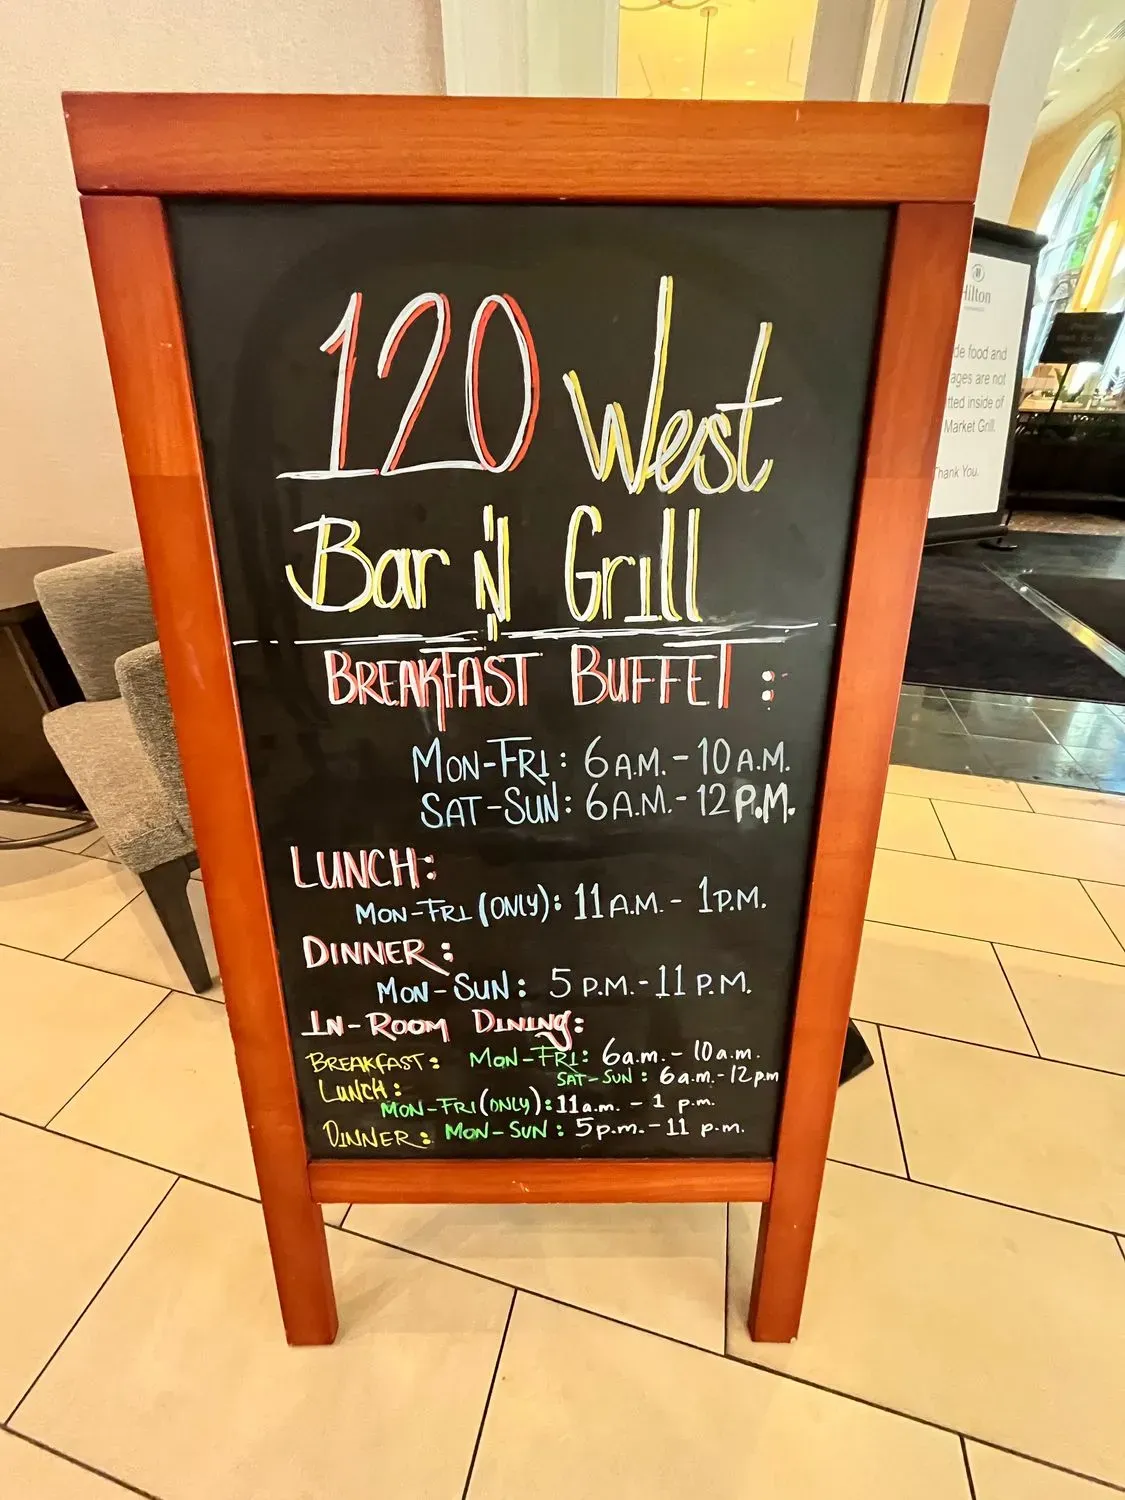 120 West
Bar N' Grill
BREAKFAST BUFFET :
MON-FRI: 6 A.M. - 10 A.M.
SAT-SUN: 6 A.M. - 12 P.M.
LUNCH:
MON-FRI (ONLY): 11 A.M. - 1 P.M.
DINNER:
MON-SUN: 5 P.M. - 11 P.M.
IN-ROOM DINING:
BREAKFAST: MON-FRI: 6 a.m. - 10 a.m.
SAT-SUN: 6 a.m. - 12 p.m
LUNCH:
MON-FRI (ONLY): 11 a.m. - 1 p.m.
DINNER: MON-SUN: 5 p.m. - 11 p.m.
Hilton
food and
are not
inside of
Market Grill.
Thank You.